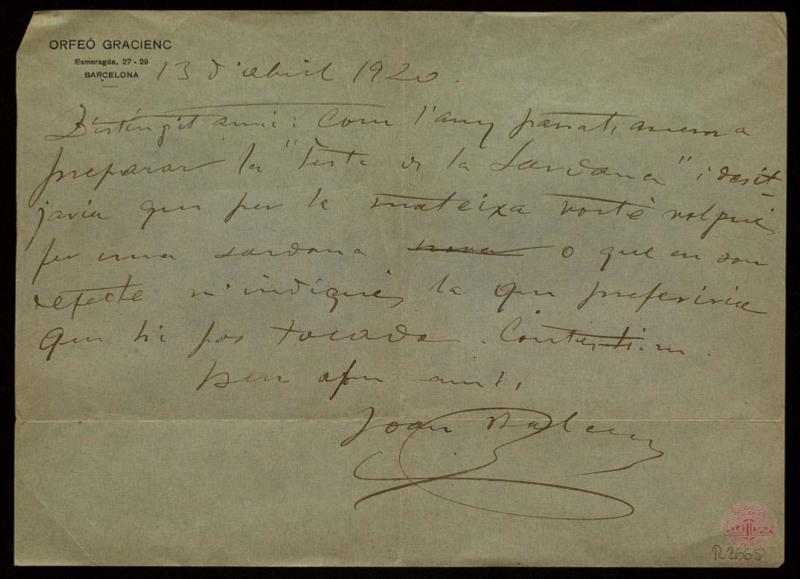 ORFEÓ GRACIENC
Esmeragda, 27 - 29
BARCELONA
13 d'abril 1920.
Distingit amic: Com l'any passat, anem a
preparar la "Festa de la Sardana" i desit-
javia que per la mateixa vostè volgués
fer una sardana nova o que en son
defecte m'indiqués la que preferiria
que hi fos tocada. Contestim.
Seu afm amic,
Joan Balcells
R.2668